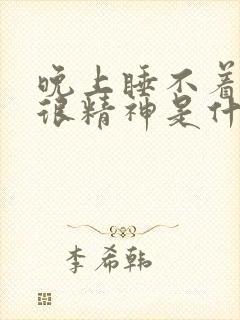 晚上睡不着
很精神是什
李希韩